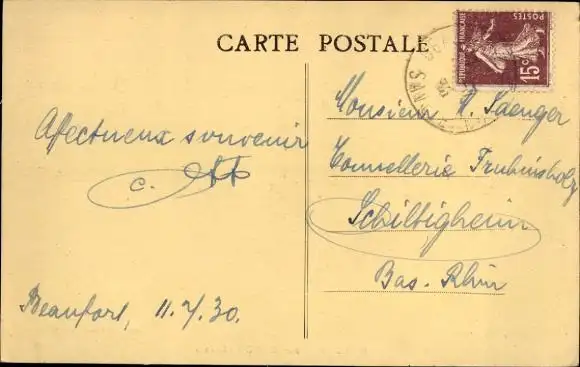 CARTE POSTALE
REPUBLIQUE FRANÇAISE
POSTES
15c
Affectueux souvenir
c.
Beaufort, 11.7.30.
Monsieur A. Saenger
Tonnellerie Fruhinsholz
Schiltigheim
Bas-Rhin